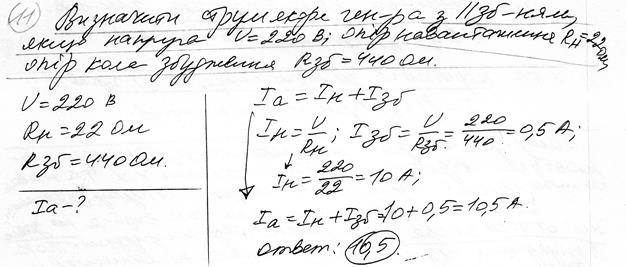 11) Визначити струм якоря ген-ра з IIзб-ням,
якщо напруга U=220 В; опір навантаження Rн=22Ом,
опір кола збудження Rзб=440 Ом.
U=220 В
Rн=22 Ом
Rзб=440 Ом.
Iа-?
Iа=Iн+Iзб
Iн=U/Rн; Iзб=U/Rзб=220/440=0,5 А;
Iн=220/22=10 А;
Iа=Iн+Iзб=10+0,5=10,5 А.
ответ: 10,5.